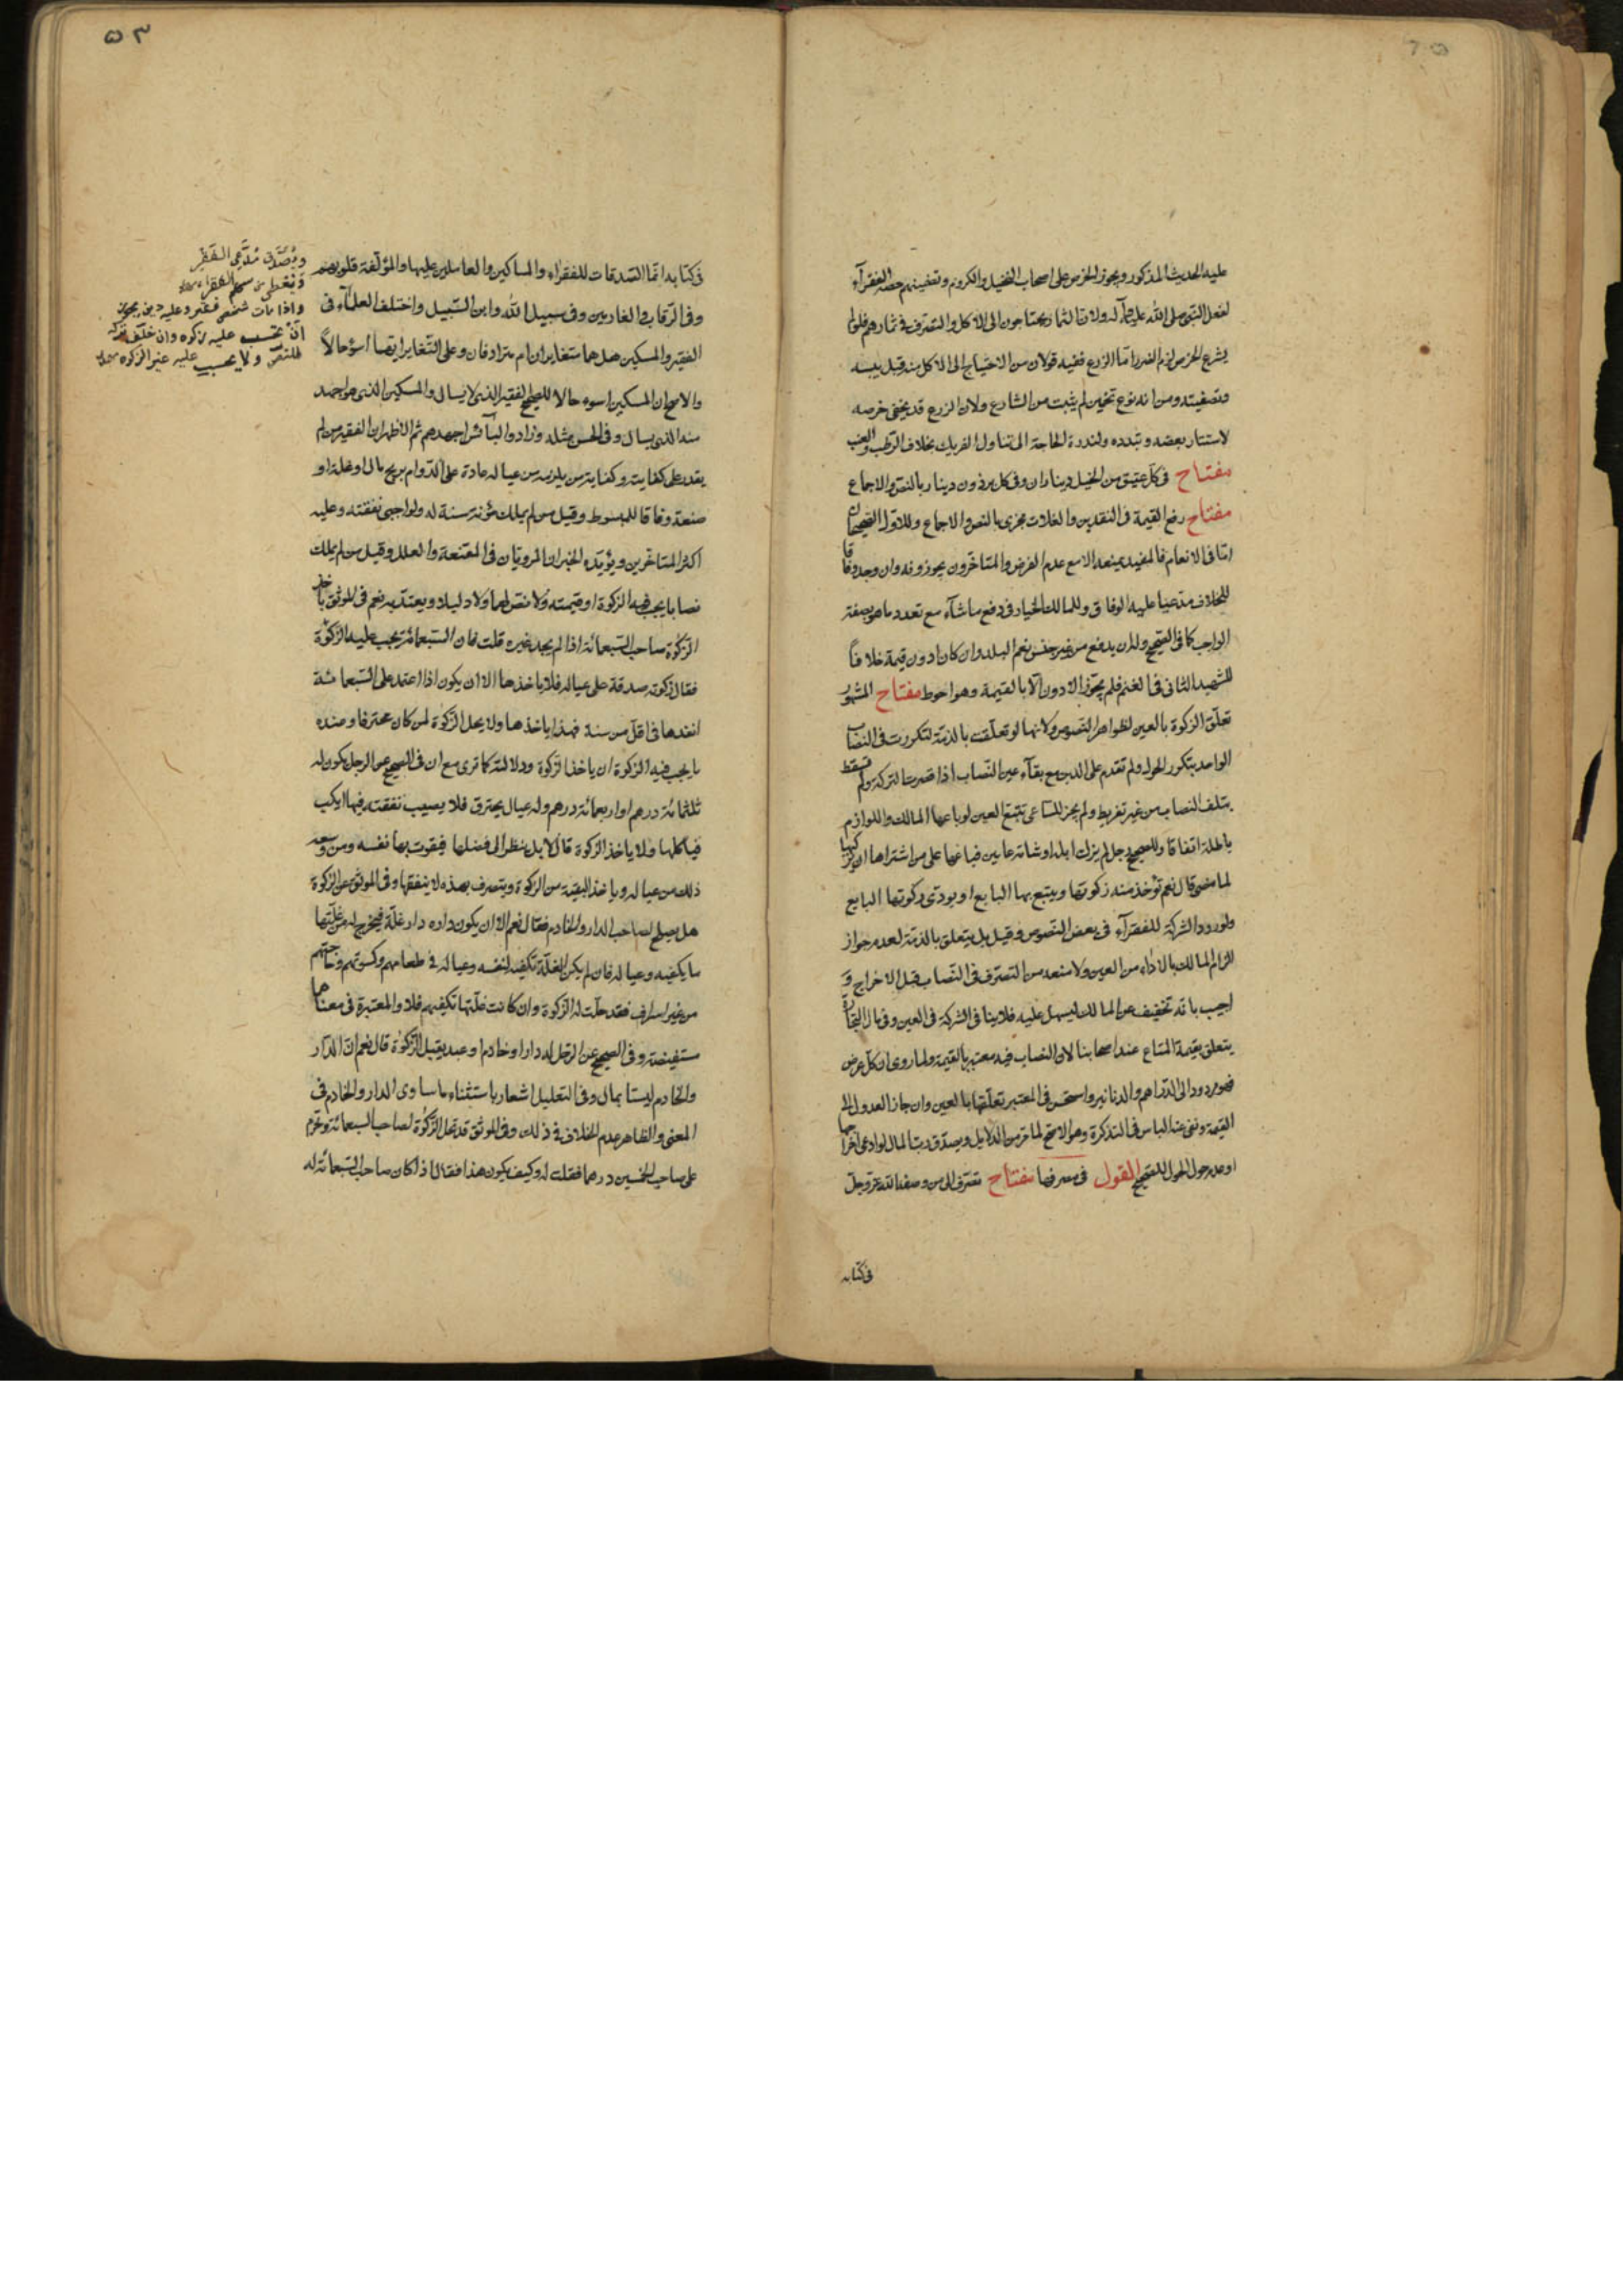 عليه الحديث المذكور ويجوز الخرص على اصحاب النخيل والكروم وتضمينهم حصة الفقرآء
لفعل النبى صلى الله عليه وآله ولان الثمار يحتاجون الى الاكل والتصرف فى ثمارهم فلو لم
يشرع الخرص لزم الضرر امّا الزرع ففيه قولان من الاحتياج الى الاكل منه قبل يبسه
وتصفيته ومن انه نوع تخمين لم يثبت من الشارع ولان الزرع قد يخفى خرصه
لاستتار بعضه وتبدده ولندرة الحاجة الى تناول الفريك بخلاف الرّطب والعنب
مفتاح فى كلّ عتيق من الخيل ديناران وفى كل برذون دينار بالنص والاجماع
مفتاح دفع القيمة فى النقدين والغلات مجزى بالنص والاجماع وللاوّل الصحيحان
امّا فى الانعام فالمفيد يمنعه الا مع عدم الفرض والمتاخّرون يجوزونه وان وجد وفاقا
للخلاف مدّعيا عليه الوفاق وللمالك الخيار فى دفع ما شآء مع تعدد ما هو بصفة
الواجب كما فى الصحيح وله ان يدفع من غير جنس نعم البلد وان كان ادون قيمة خلافاً
للشهيد الثانى فى الغنم فلم يجوّز الادون الّا بالقيمة وهو احوط مفتاح المشهور
تعلّق الزكوة بالعين لظواهر النّصوص ولانها لو تعلّقت بالذمّة لتكررت فى النصاب
الواحد بتكرر الحول ولم تقدم على الدين مع بقآء عين النّصاب اذا قصرت التركة ولم تسقط
بتلف النصاب من غير تفريط ولم يجز للسّاعى تتبّع العين لو باعها المالك واللوازم
باطلة اتفاقا وللصحيح رجل لم يزك ابله او شاته عامين فباعها على من اشتراها ان يزكيها
لما مضى قال نعم تؤخذ منه زكوتها ويتبع بها البايع او يودّى زكوتها البايع
ولورود الشركة للفقرآء فى بعض النّصوص وقيل بل يتعلق بالذمّة لعدم جواز
الزام المالك بالاداء من العين ولا منعه من التصرّف فى النّصاب قبل الاخراج و
اجيب بانّه تخفيف عن المالك ليسهل عليه فلا ينافى الشركة فى العين وفى مال التجارة
يتعلق بقيمة المتاع عند اصحابنا لان النصاب فيه معتبر بالقيمة ولما روى ان كل عرض
فهو مردود الى الدّراهم والدنانير واستحسن فى المعتبر تعلّقها بالعين وان جاز العدول الى
القيمة ونفى عنه الباس فى التذكرة وهو الاصحّ لما مرّ من الدلايل ويصدّق ربّ المال لو ادعى اخراجها
او عدم حول الحول للصحيح القول فى مصرفها مفتاح تصرف الى من وصفه الله عزّوجلّ
فى كتابه
٥٣
فى كتابه انّما الصّدقات للفقراء والمساكين والعاملين عليها والمؤلّفة قلوبهم
وفى الرّقاب والغارمين وفى سبيل الله وابن السّبيل واختلف العلمآء فى
الفقير والمسكين هل هما متغايران ام مترادفان وعلى التّغاير ايّهما اسوء حالاً
والاصح ان المسكين اسوء حالا للصحيح الفقير الذى لا يسال والمسكين الذى هو اجهد
منه الذى يسال وفى الحسن مثله وزاد والبآئس اجهدهم ثم الاظهر ان الفقير من لم
يقدر على كفايته وكفاية من يلزمه من عياله عادة على الدّوام بربح مال او غلة او
صنعة وفاقا للمبسوط وقيل من لم يملك مؤنة سنة له ولواجبى نفقته وعليه
اكثر المتاخّرين ويؤيّده الخبران المرويّان فى المقنعة والعلل وقيل من لم يملك
نصابا يجب فيه الزكوة او قيمته ولا نص لهما ولا دليل ويعتدّ به نعم فى الموثق ياخذ
الزكوة صاحب السّبعمائة اذا لم يجد غيره قلت فان السّبعمائة يجب عليه الزّكوة
فقال زكوته صدقة على عياله فلا ياخذها الا ان يكون اذا اعتمد على السّبعمائة
انفدها فى اقلّ من سنة فهذا ياخذها ولا يحل الزّكوة لمن كان محترفا وعنده
ما يجب فيه الزكوة ان ياخذ الزكوة ودلالته كما ترى مع ان فى الصحيح عن الرجل يكون له
ثلثمائة درهم او اربعمائة درهم وله عيال وهو يحترف فلا يصيب نفقته فيها ايكب
فياكلها ولا ياخذ الزكوة قال لا بل ينظر الى فضلها فيقوت بها نفسه ومن وسعه
ذلك من عياله وياخذ البقيّة من الزكوة ويتصرف بهذه لا ينفقها وفى الموثق عن الزكوة
هل يصلح لصاحب الدار والخادم فقال نعم الا ان يكون داره دار غلّة فيخرج له من غلّتها
ما يكفيه وعياله فان لم يكن الغلّة تكفيه لنفسه وعياله فى طعامهم وكسوتهم وحاجتهم
من غير اسراف فقد حلّت له الزكوة وان كانت غلّتها تكفيهم فلا والمعتبرة فى معناهما
مستفيضة وفى الصحيح عن الرّجل له دار او خادم او عبد يقبل الزّكوة قال نعم انّ الدّار
والخادم ليستا بمال وفى التعليل اشعار باستثناء ما ساوى الدار والخادم فى
المعنى والظاهر عدم الخلاف فى ذلك وفى الموثق قد تحل الزّكوة لصاحب السبعمائة وتحرم
على صاحب الخمسين درهما فقلت له وكيف يكون هذا فقال اذا كان صاحب السّبعمائة له
ويُصَدَّق مُدَّعِى الفَقْرِ
ويعطى من سهم الفقراء
واذا مات شخص فقير وعليه دين يجوز
ان يحتسب عليه زكوه وان خلّف تركه
للنص ولا يحسب عليه غير الزكوه